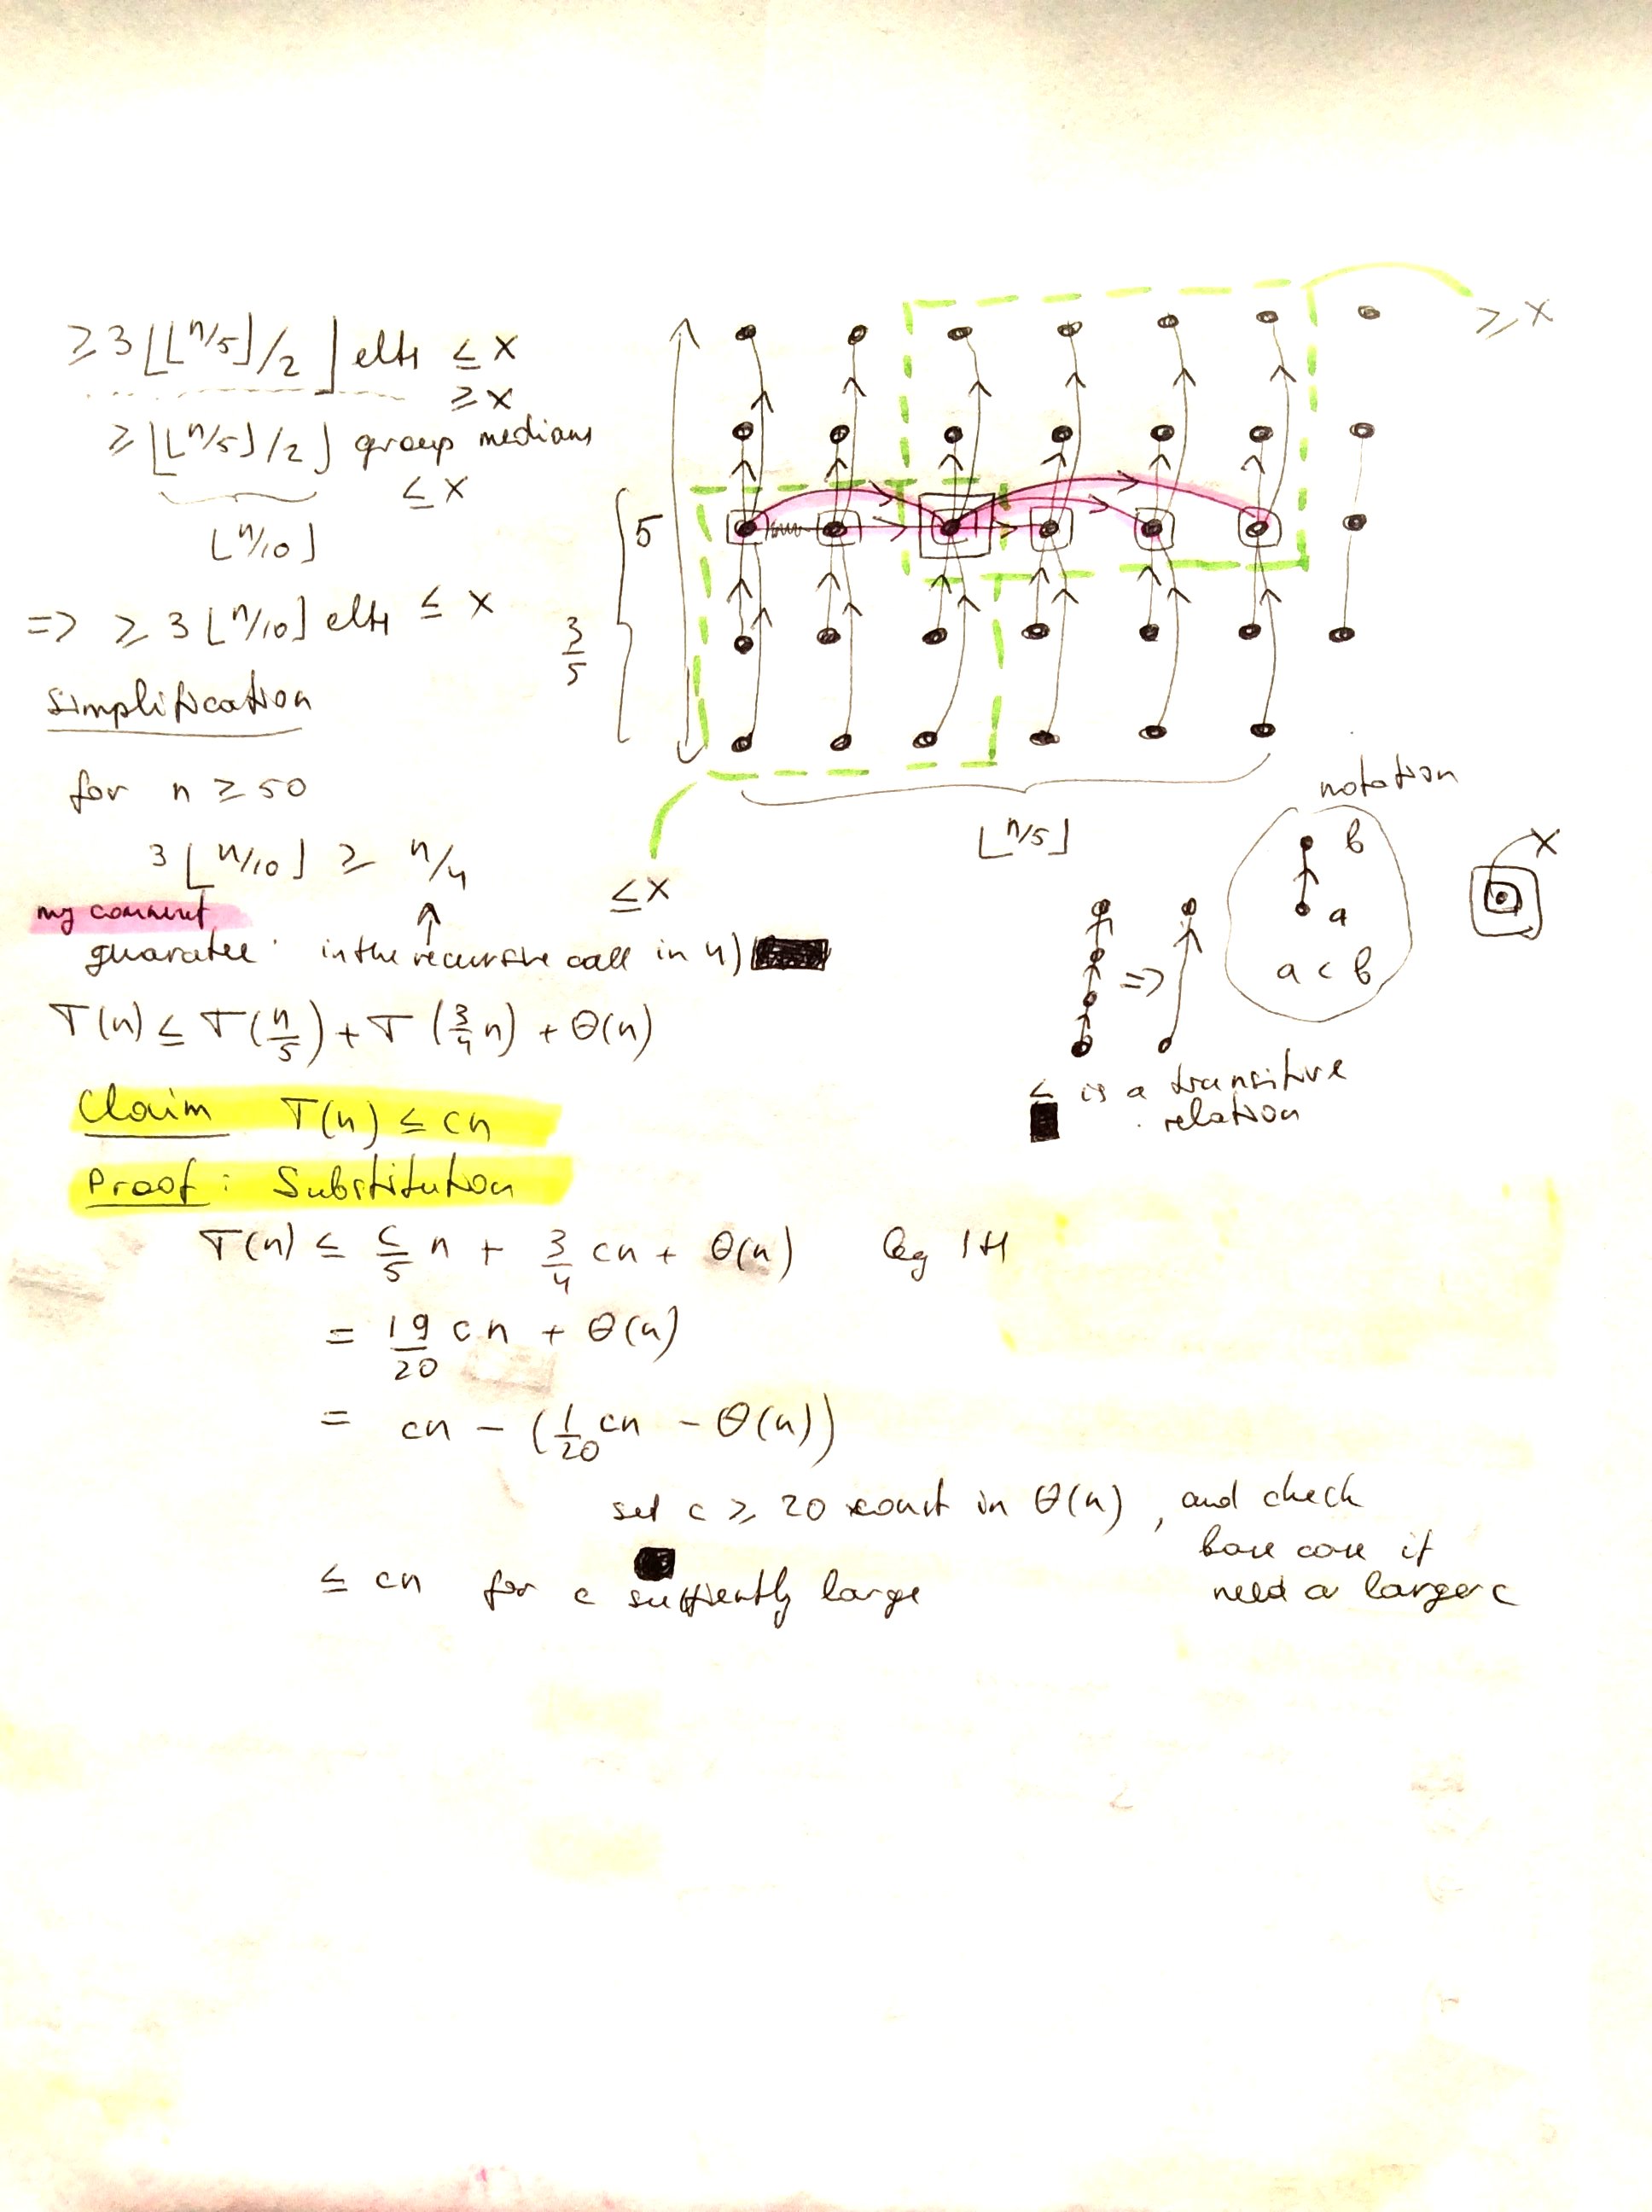 ≥ 3 ⌊⌊n/5⌋/2⌋ elts ≤ x
≥ x
≥ ⌊⌊n/5⌋/2⌋ group medians
≤ x
⌊n/10⌋
=> ≥ 3 ⌊n/10⌋ elts ≤ x
simplification
for n ≥ 50
3 ⌊n/10⌋ ≥ n/4
my comment
guaratee in the recursive call in 4)
T(n) ≤ T(n/5) + T(3/4 n) + Θ(n)
Claim T(n) ≤ cn
Proof: Substitution
T(n) ≤ c/5 n + 3/4 cn + Θ(n) by IH
= 19/20 cn + Θ(n)
= cn − (1/20 cn − Θ(n))
set c ≥ 20 const in Θ(n), and check
base case if
need a larger c
≤ cn for c suffiently large
≥ x
5
3/5
≤ x
⌊n/5⌋
notation
b
a
a < b
x
=>
≤ is a transitive
relation